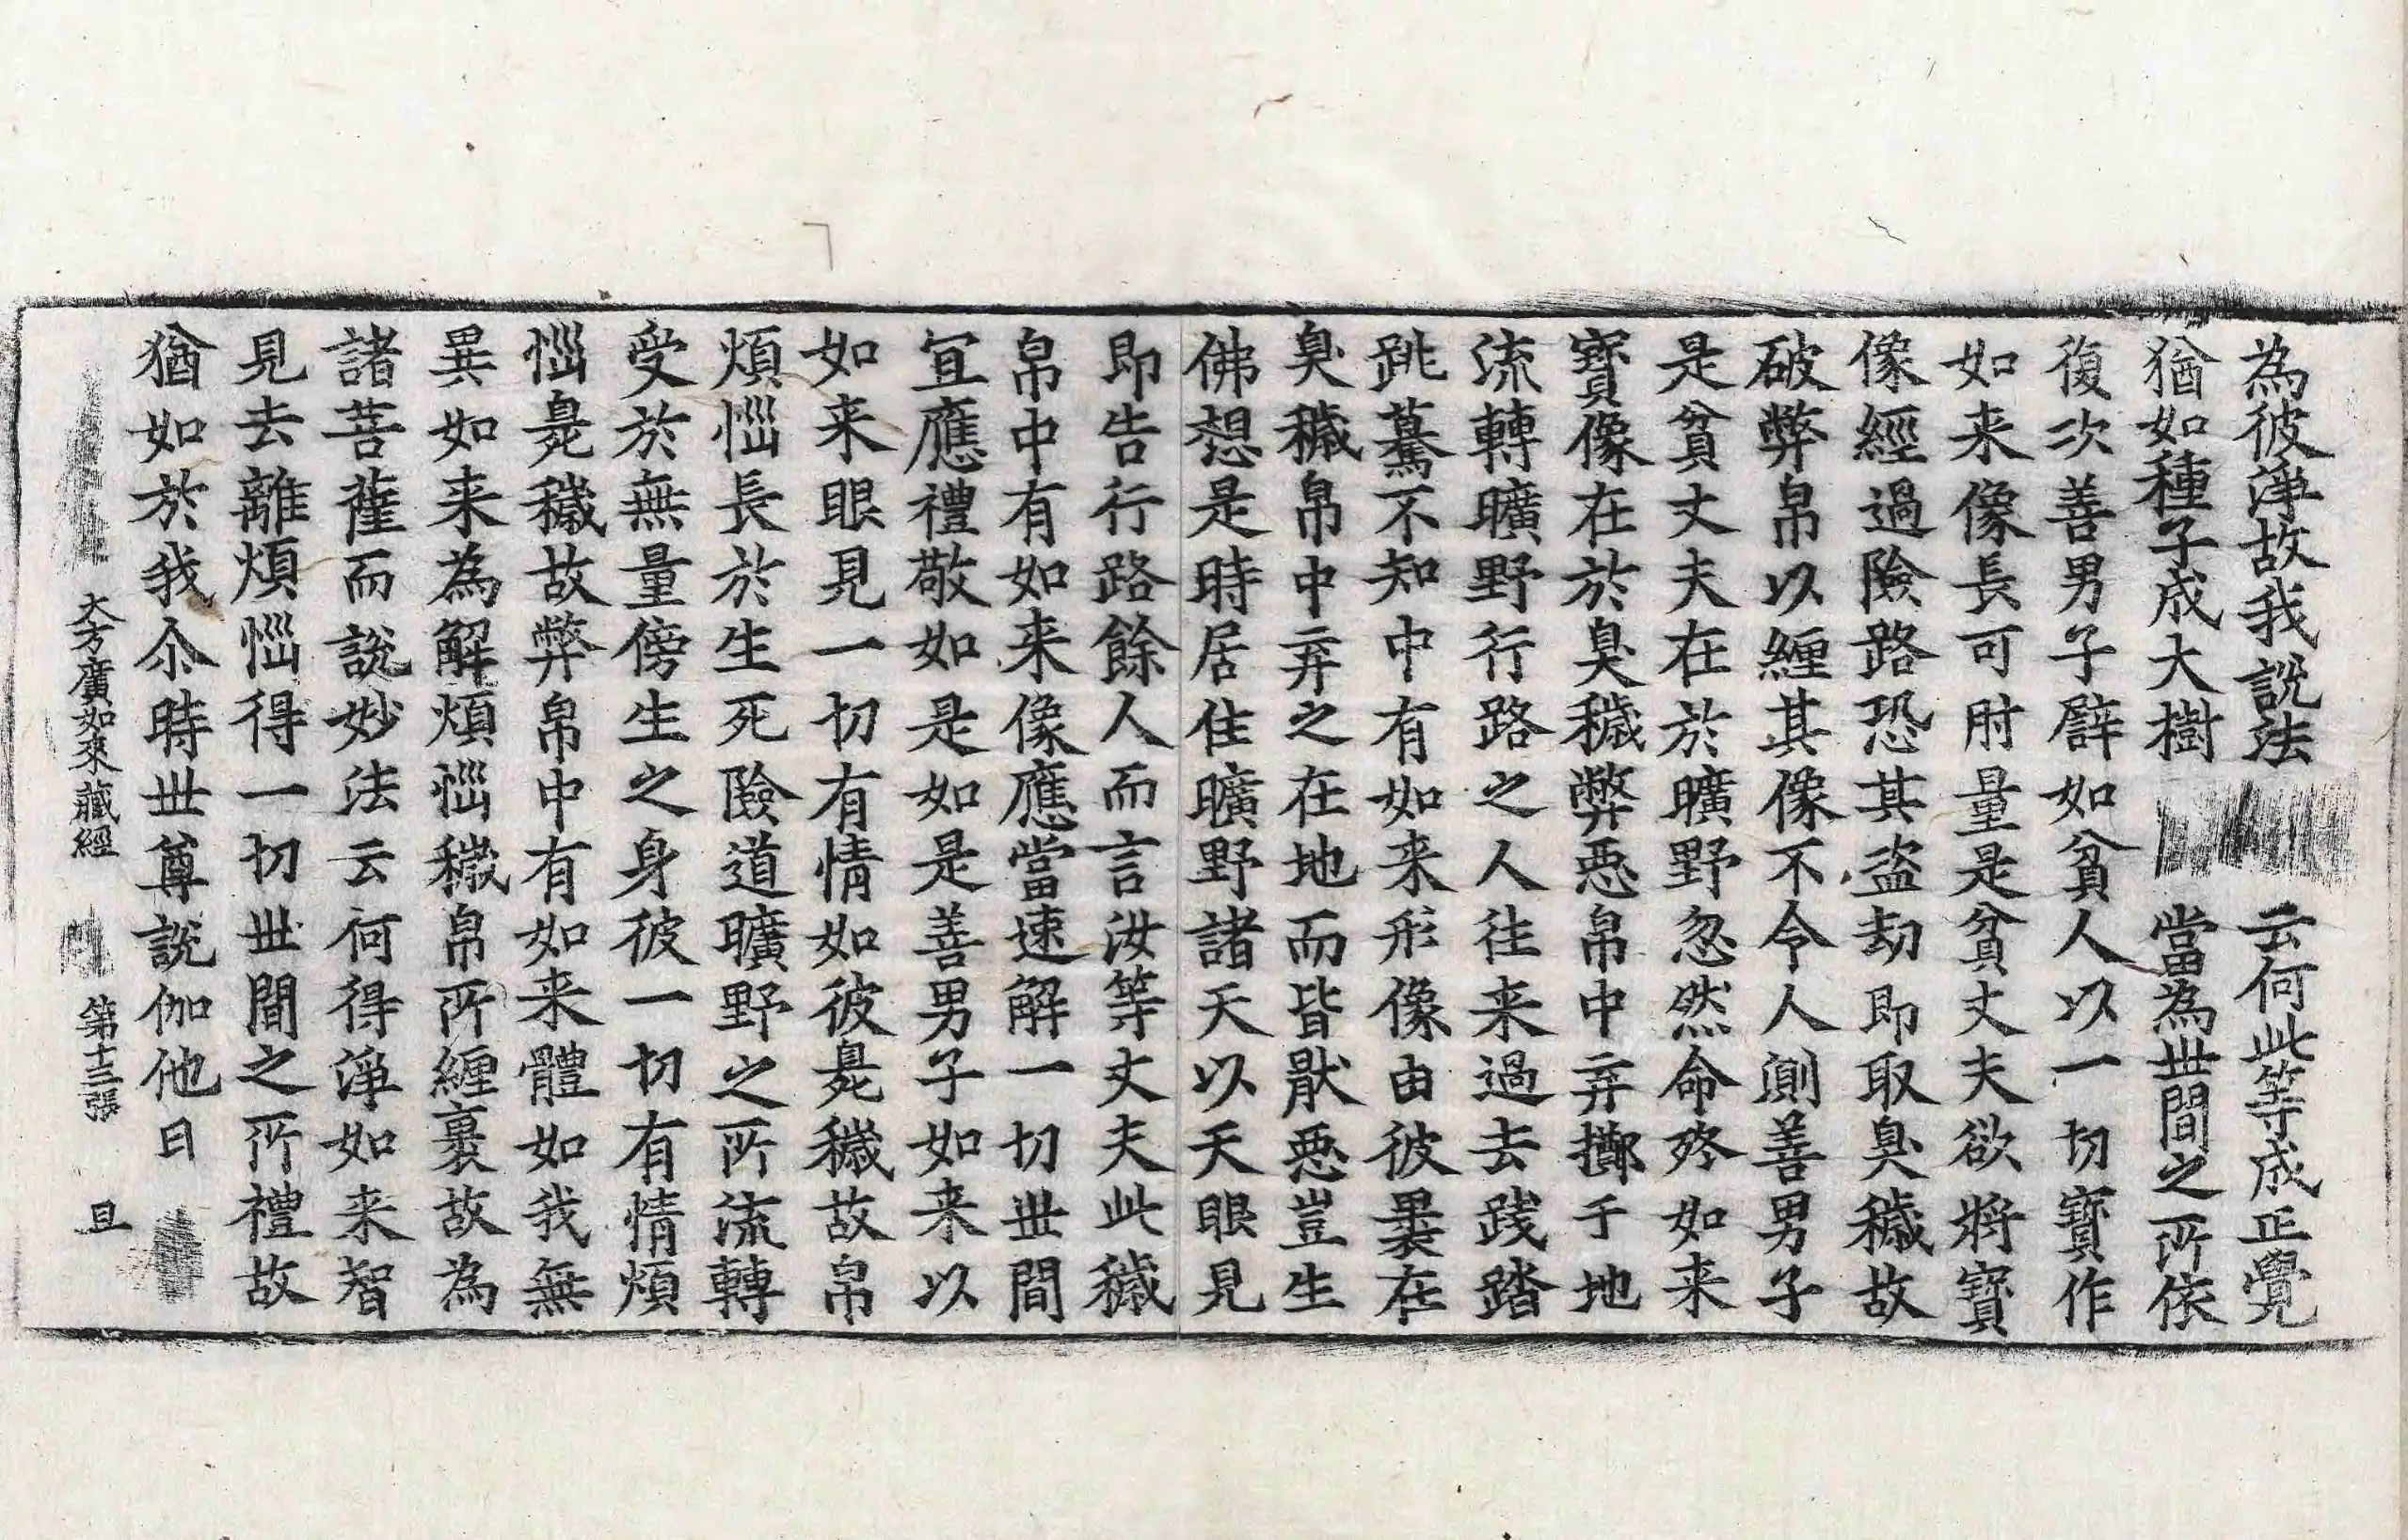 為彼淨故我說法　云何此等成正覺
猶如種子成大樹　當為世間之所依
復次善男子譬如貧人以一切寶作
如来像長可肘量是貧丈夫欲將寶
像經過險路恐其盜劫即取臭穢故
破弊帛以纏其像不令人測善男子
是貧丈夫在於曠野忽然命終如来
寶像在於臭穢弊惡帛中弃擲于地
流轉曠野行路之人往来過去踐踏
跳驀不知中有如来形像由彼裹在
臭穢帛中弃之在地而皆猒惡豈生
佛想是時居住曠野諸天以天眼見
即告行路餘人而言汝等丈夫此穢
帛中有如来像應當速解一切世間
宜應禮敬如是如是善男子如来以
如来眼見一切有情如彼臰穢故帛
煩惱長於生死險道曠野之所流轉
受於無量傍生之身彼一切有情煩
惱臰穢故弊帛中有如来體如我無
異如来為解煩惱穢帛所纏裹故為
諸菩薩而說妙法云何得淨如来智
見去離煩惱得一切世間之所禮故
猶如於我尒時世尊說伽他曰
大方廣如來藏經　第十三張　旦